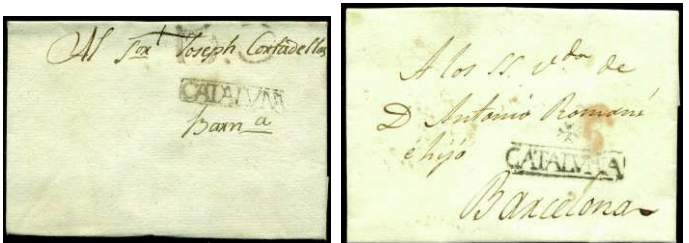 Al Sor. Joseph Cortadellas
CATALVÑA
Barna
A los SS. vda de
D Antonio Romané
é hijo
CATALVÑA
Barcelona